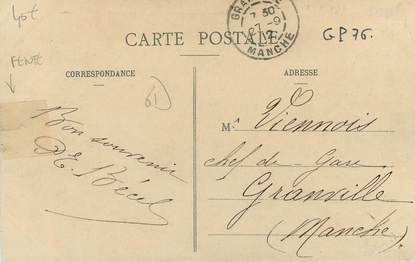 CARTE POSTALE
GP 76.
MANCHE
CORRESPONDANCE
ADRESSE
Bon souvenir
E. Bécel
M. Viennois
chef de Gare
Granville
(Manche).